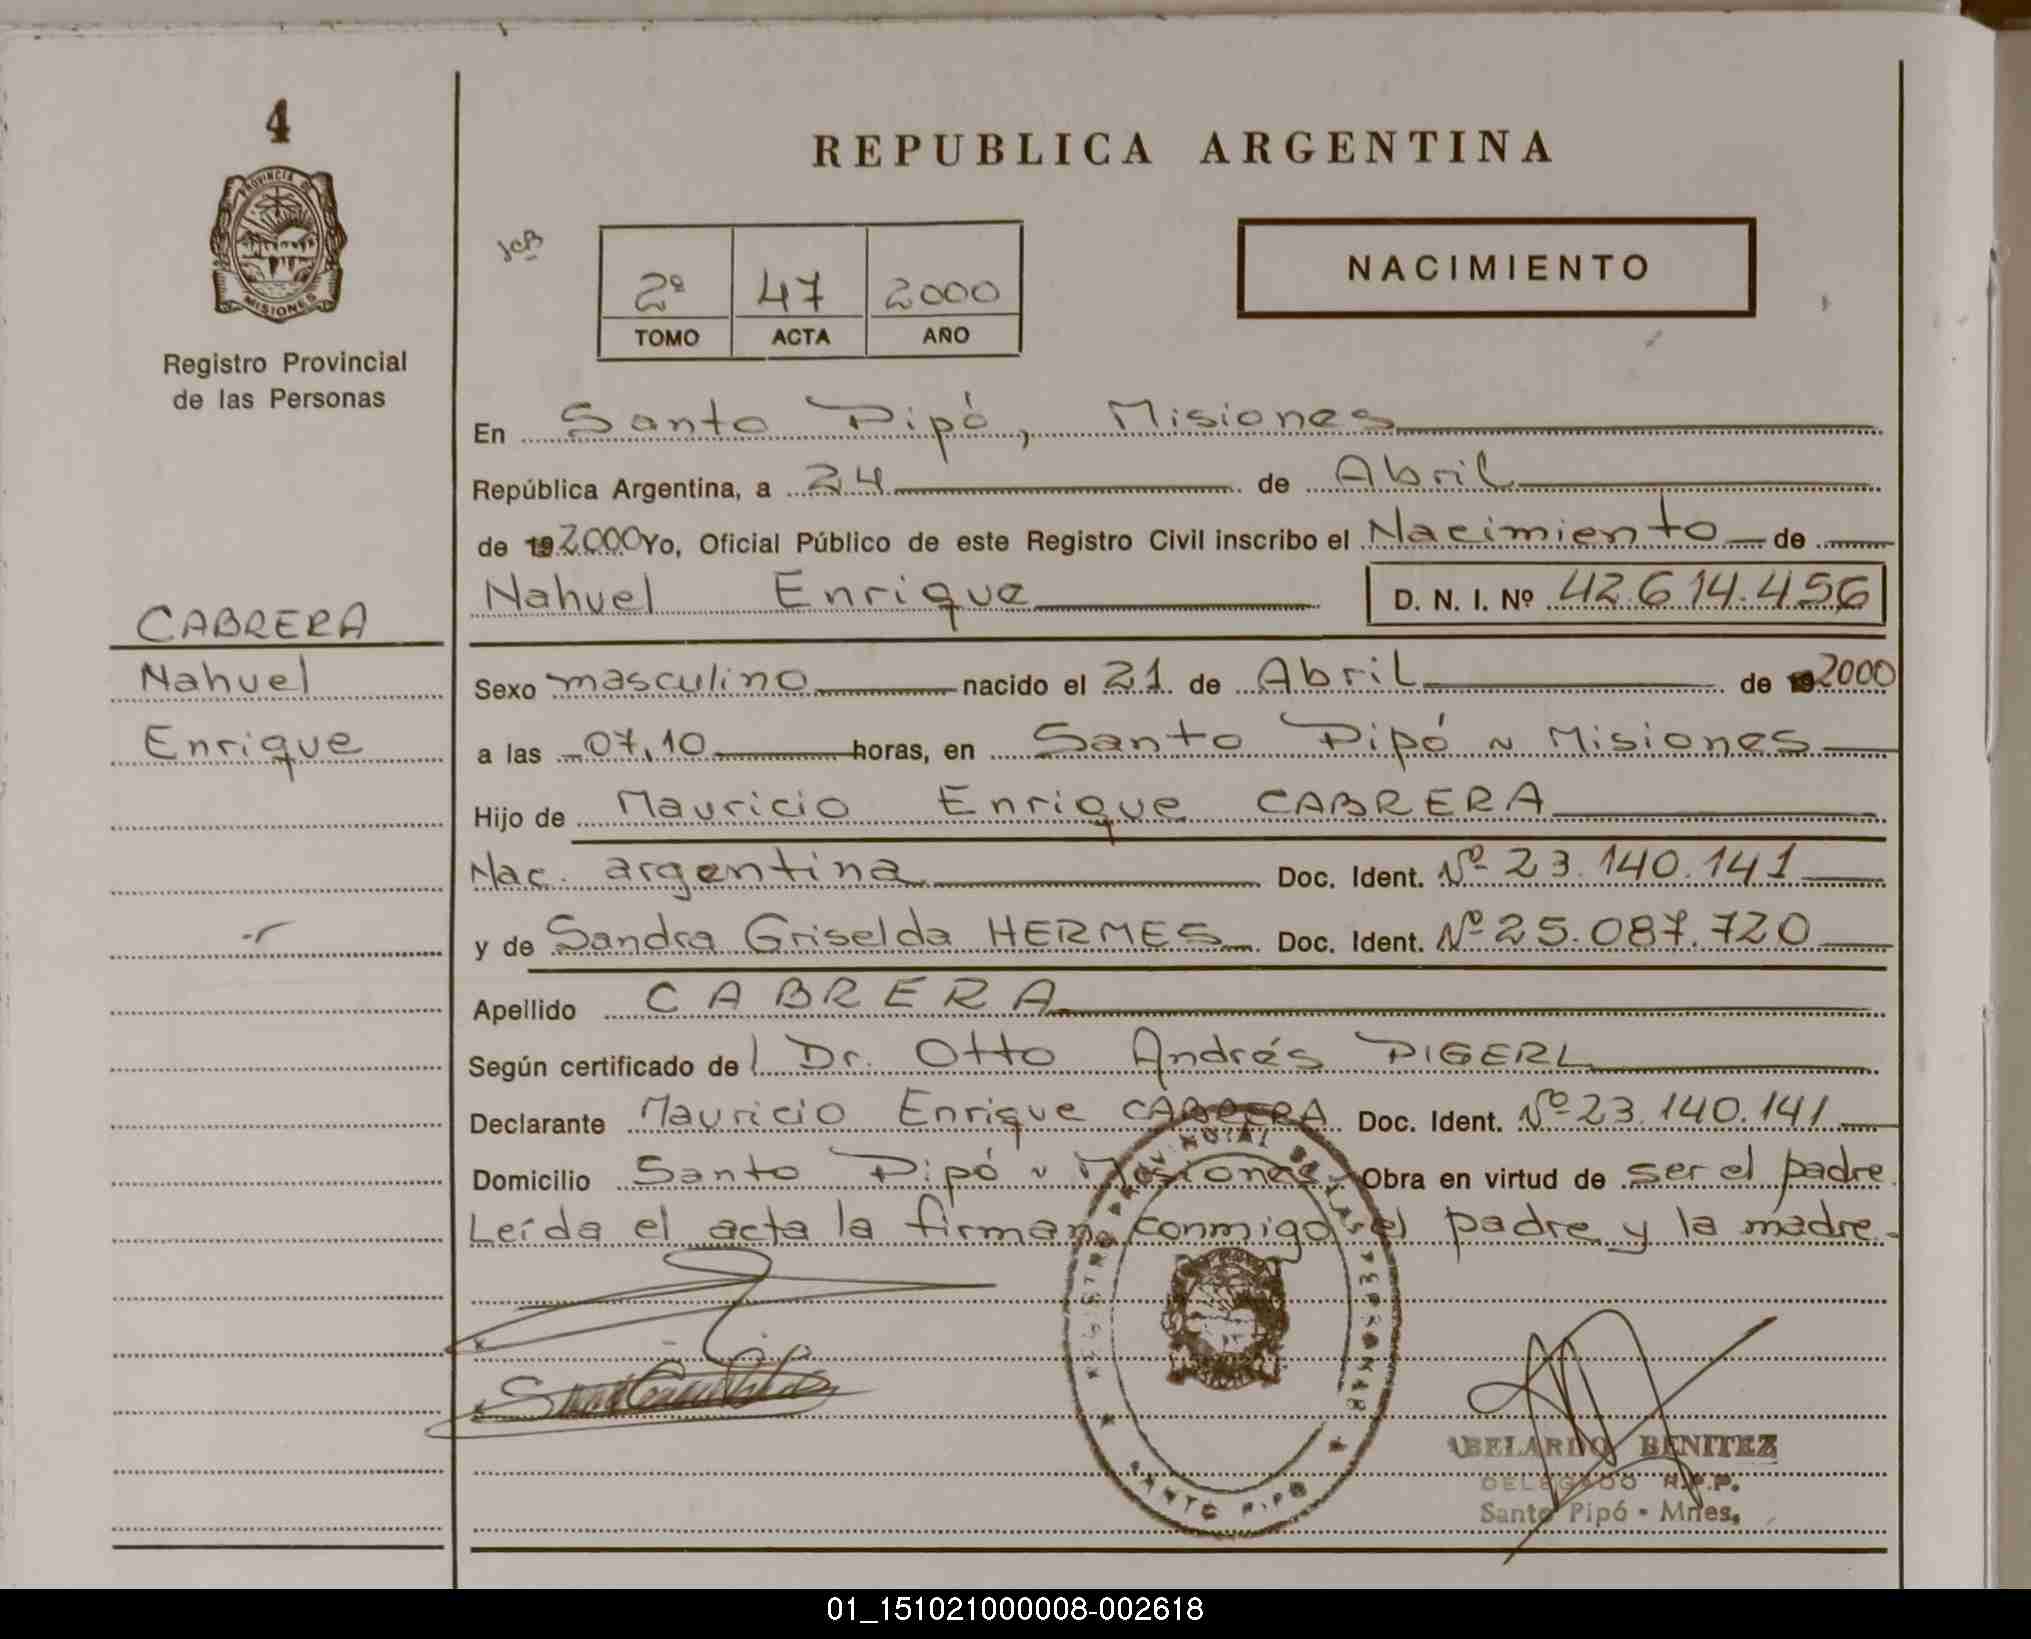 4
PROVINCIA DE
MISIONES
Registro Provincial
de las Personas
CABRERA
Nahuel
Enrique
REPUBLICA ARGENTINA
JCB
2º 47 2000
TOMO ACTA AÑO
NACIMIENTO
En Santo Pipó, Misiones
República Argentina, a 24 de Abril
de 19 2000 Yo, Oficial Público de este Registro Civil inscribo el Nacimiento de
Nahuel Enrique D. N. I. Nº 42.614.456
Sexo masculino nacido el 21 de Abril de 19 2000
a las 07,10 horas, en Santo Pipó ~ Misiones
Hijo de Mauricio Enrique CABRERA
Nac. argentina Doc. Ident. Nº 23.140.141
y de Sandra Griselda HERMES Doc. Ident. Nº 25.087.720
Apellido CABRERA
Según certificado del Dr. Otto Andrés PIGERL
Declarante Mauricio Enrique CABRERA Doc. Ident. Nº 23.140.141
Domicilio Santo Pipó ~ Misiones Obra en virtud de ser el padre.
Leída el acta la firman conmigo el padre y la madre.-
REGISTRO PROVINCIAL DE LAS PERSONAS
SANTO PIPO
ABELARDO BENITEZ
DELEGADO R.P.P.
Santo Pipó - Mnes.
01_151021000008-002618